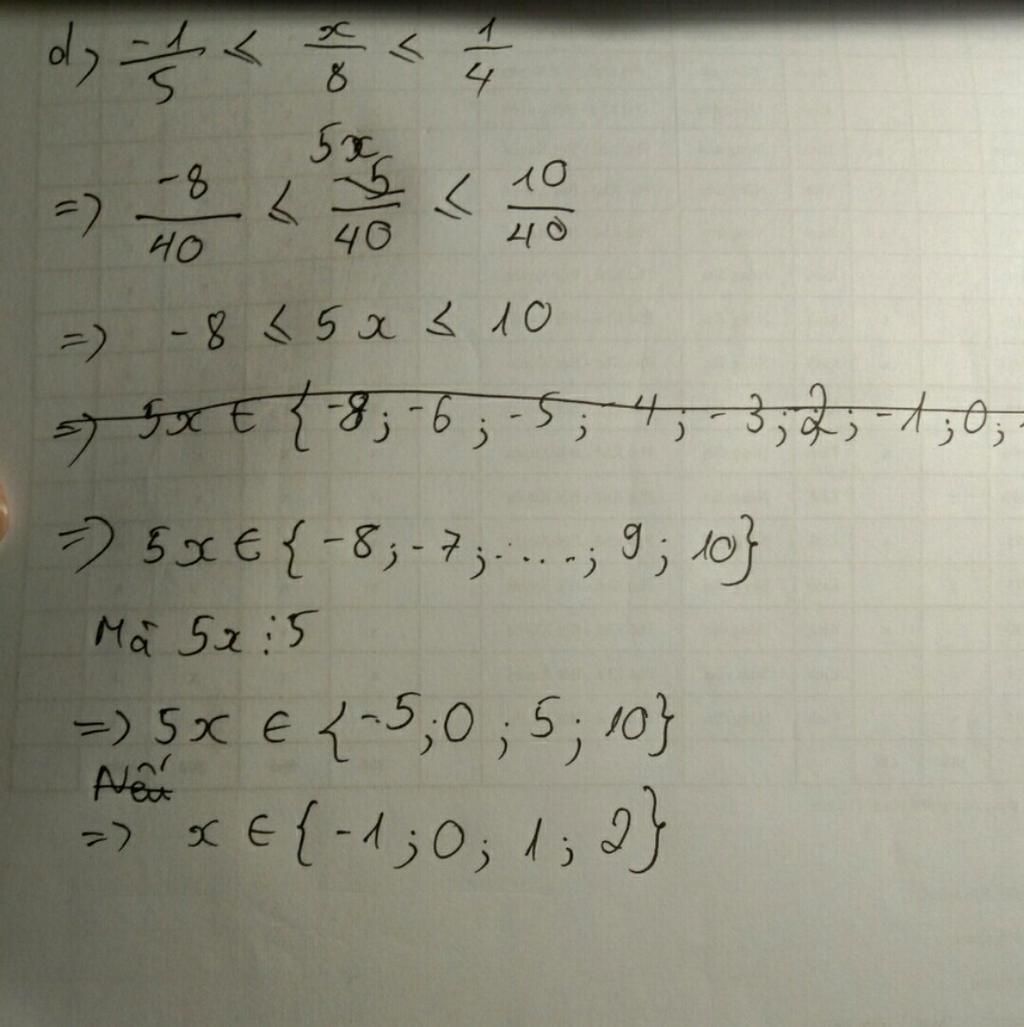 d) -1/5 ≤ x/8 ≤ 1/4
=> -8/40 ≤ 5x/40 ≤ 10/40
=> -8 ≤ 5x ≤ 10
=> 5x ∈ {-8; -6; -5; -4; -3; 2; -1; 0;
=> 5x ∈ {-8; -7; ....; 9; 10}
Mà 5x ⋮ 5
=> 5x ∈ {-5; 0; 5; 10}
Nếu
=> x ∈ {-1; 0; 1; 2}